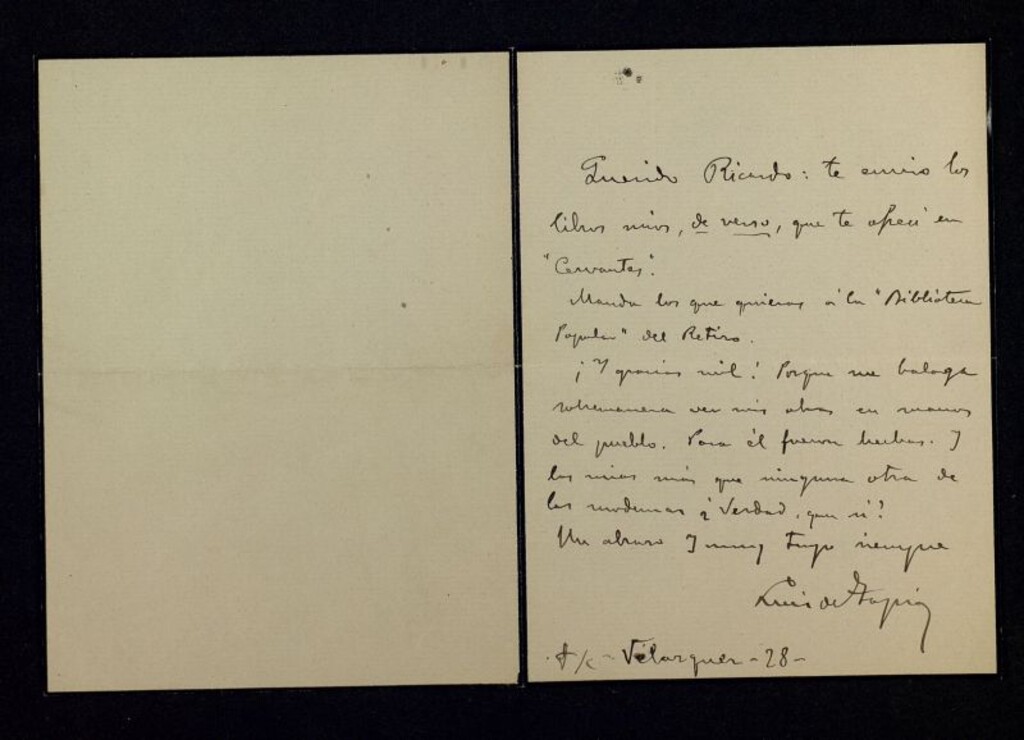 Querido Ricardo: te envio los
libros mios, de verso, que te ofreci en
"Cervantes".
Manda los que quieras á la "Biblioteca
Popular" del Retiro.
¡Y gracias mil! Porque me halaga
sobremanera ver mis obras en manos
del pueblo. Para él fueron hechas. Y
las mias más que ninguna otra de
las modernas ¿Verdad, que si?
Un abrazo y muy tuyo siempre
Luis de Tapia
s/c - Velazquez - 28 -